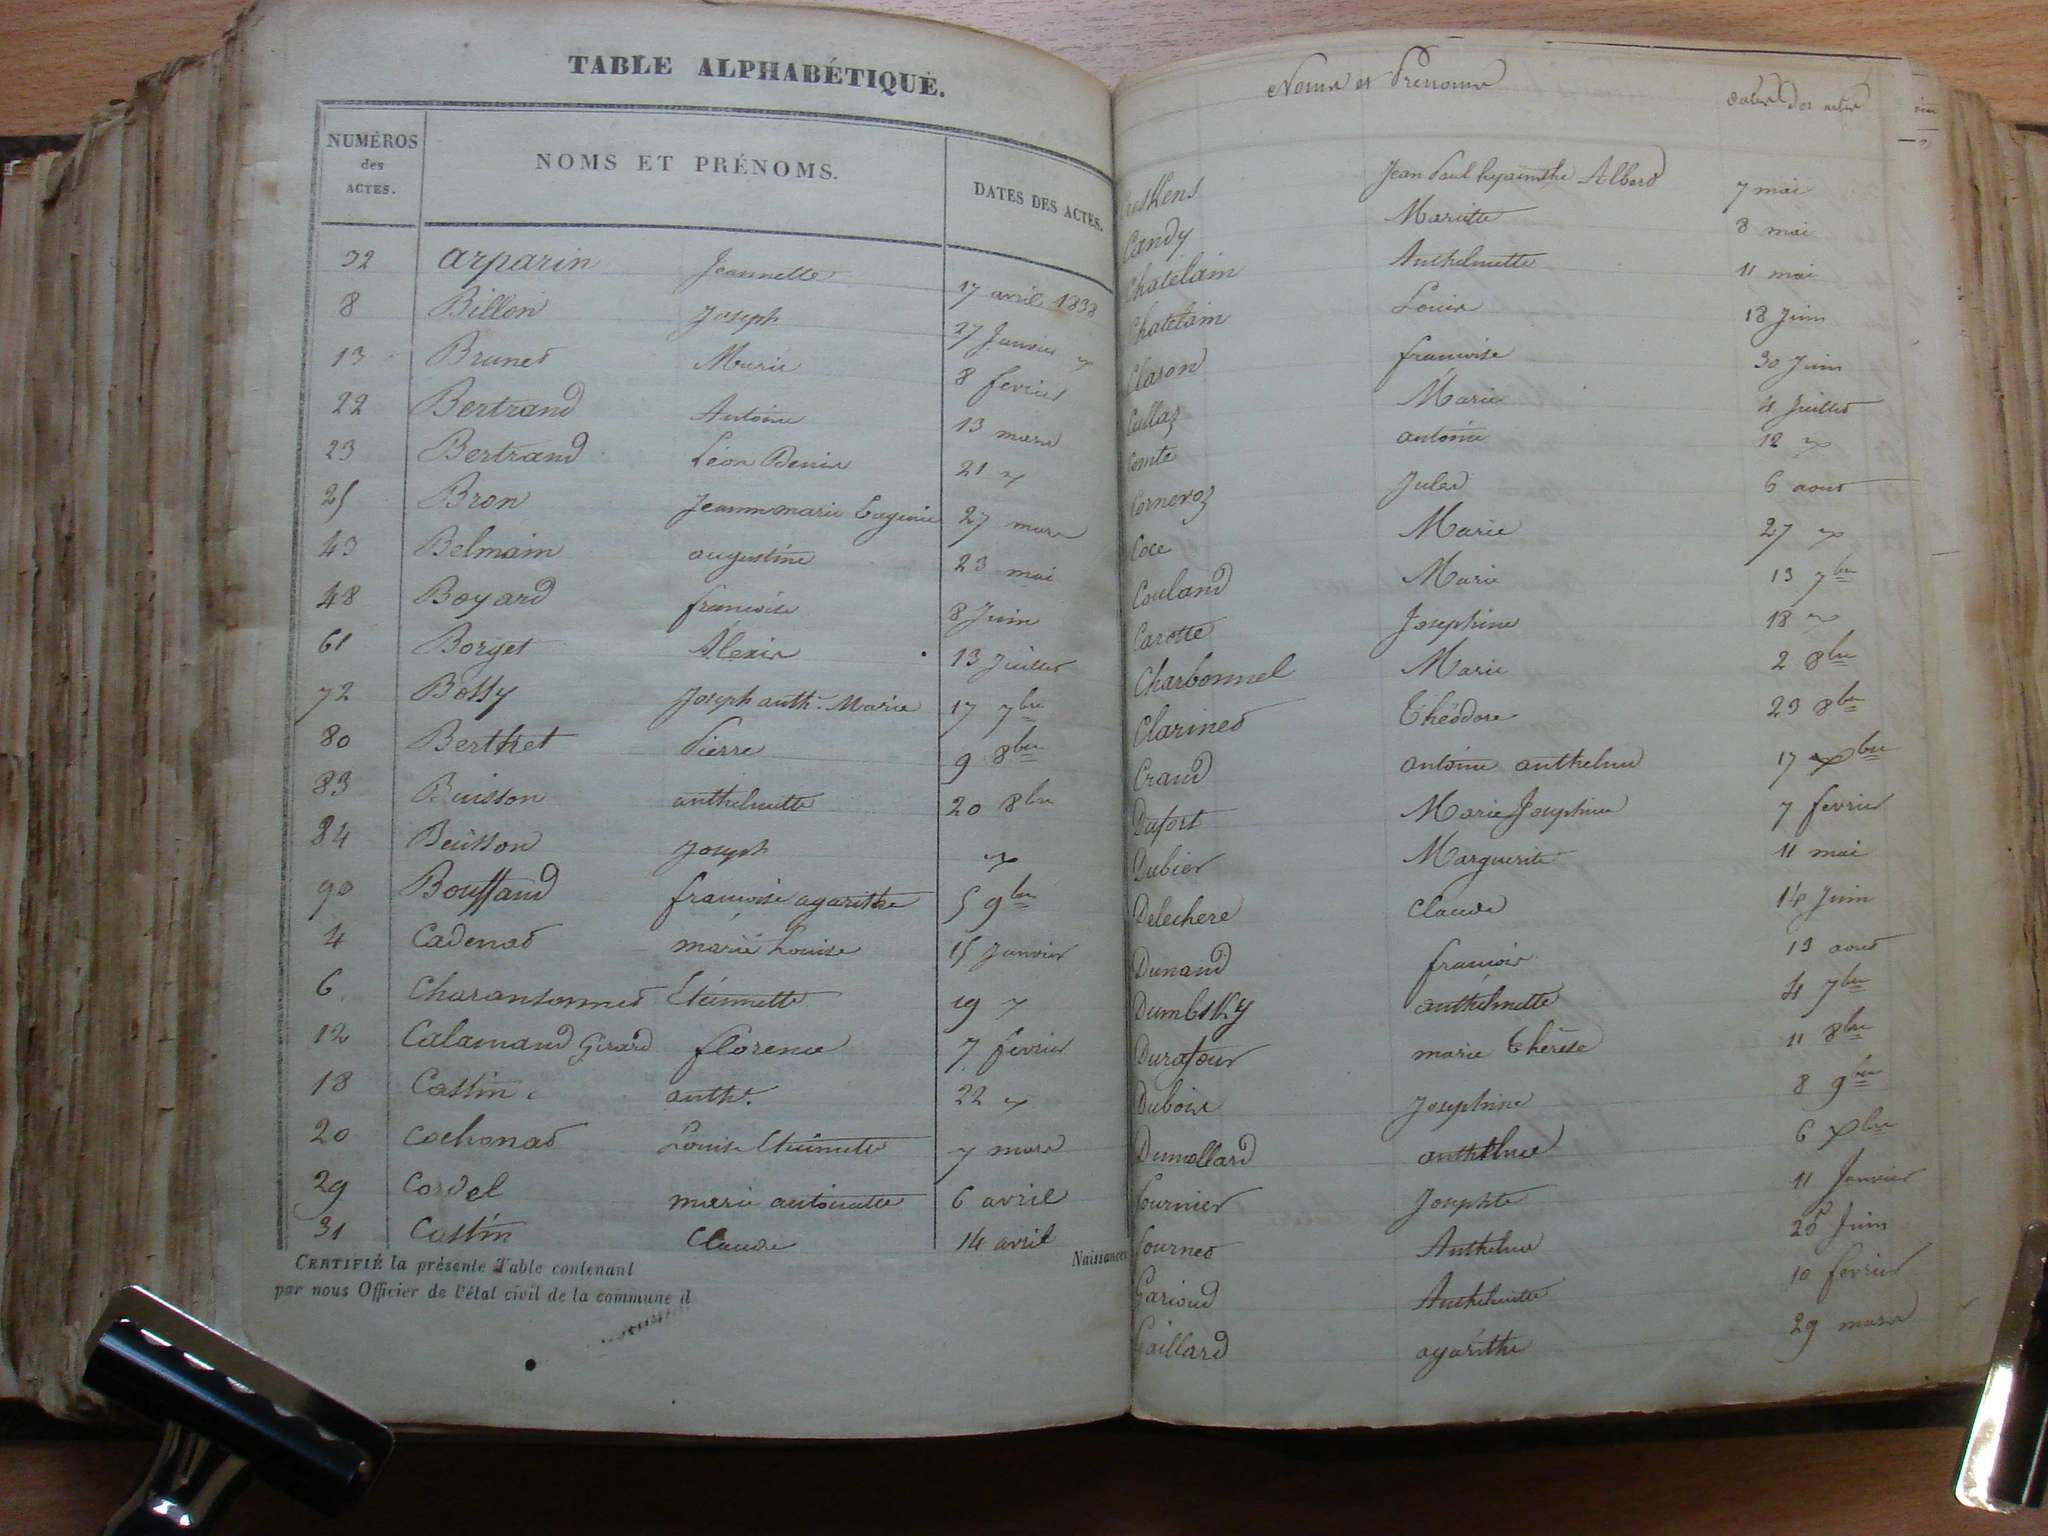 TABLE ALPHABÉTIQUE.
NUMÉROS des ACTES. NOMS ET PRÉNOMS. DATES DES ACTES.
32 arparin Jeannette 17 avril 1838
8 Billon Joseph 27 Janvier
13 Brunet Marie 8 fevrier
22 Bertrand Antoine 13 mars
23 Bertrand Leon Denis 21 "
25 Bron Jeanne marie Eugenie 27 mars
43 Belmain augustine 23 mai
48 Boyard francoise 8 Juin
61 Borget Alexis 13 Juillet
72 Bossy Joseph anth. Marie 17 7bre
80 Berthet Pierre 9 8bre
83 Buisson anthelmette 20 8bre
84 Buisson Joseph "
90 Bouffand francoise agarithe 5 9bre
4 Cadenat marie Louise 15 Janvier
6 Charansonnet Etiennette 19 "
12 Calamand Girard florence 7 fevrier
18 Castin anthe. 22 "
20 Cochonat Louise Etiennette 7 mars
29 Cordel marie antoinette 6 avril
31 Castin Claude 14 avril
CERTIFIÉ la présente Table contenant Naissances
par nous Officier de l'état civil de la commune d
Noms et Prénoms dates des actes
Jean Paul hyacinthe Albert 7 mai
Candy Mariette 8 mai
Chatelain Anthelmette 11 mai
Chatelain Louis 18 Juin
Clason francoise 30 Juin
Cullaz Marie 4 Juillet
Comte antoine 12 "
Cornevoz Jules 6 aout
Coce Marie 27 "
Couland Marie 13 7bre
Carotte Josephine 18 "
Charbonnel Marie 2 8bre
Clarinet Théodore 23 8bre
Craud antoine anthelme 17 Xbre
Dufort Marie Josephine 7 fevrier
Dubier Marguerite 11 mai
Delechere Claude 14 Juin
Dunand francois 13 aout
Dumbsky anthelmette 4 7bre
Durafour marie Thérèse 11 8bre
Dubois Josephine 8 9bre
Dumollard anthelme 6 Xbre
fournier Josephte 11 Janvier
fournet Anthelme 25 Juin
Garioud Anthelmette 10 fevrier
Gaillard agarithe 29 mars